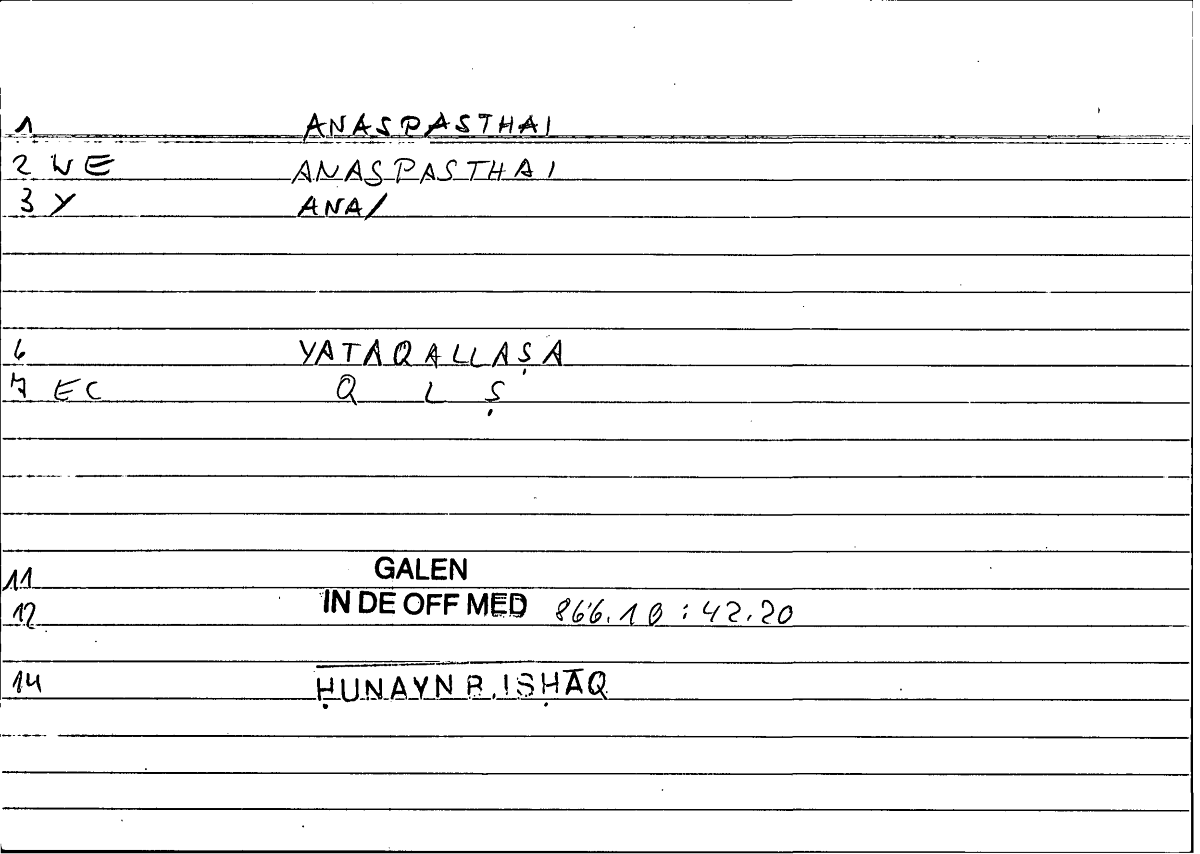 1 ANASPASTHAI
2 WE ANASPASTHAI
3 Y ANA/
6 YATAQALLAṢA
7 EC Q L Ṣ
11 GALEN
12 IN DE OFF MED 866.10 : 42.20
14 ḤUNAYN B. ISḤĀQ